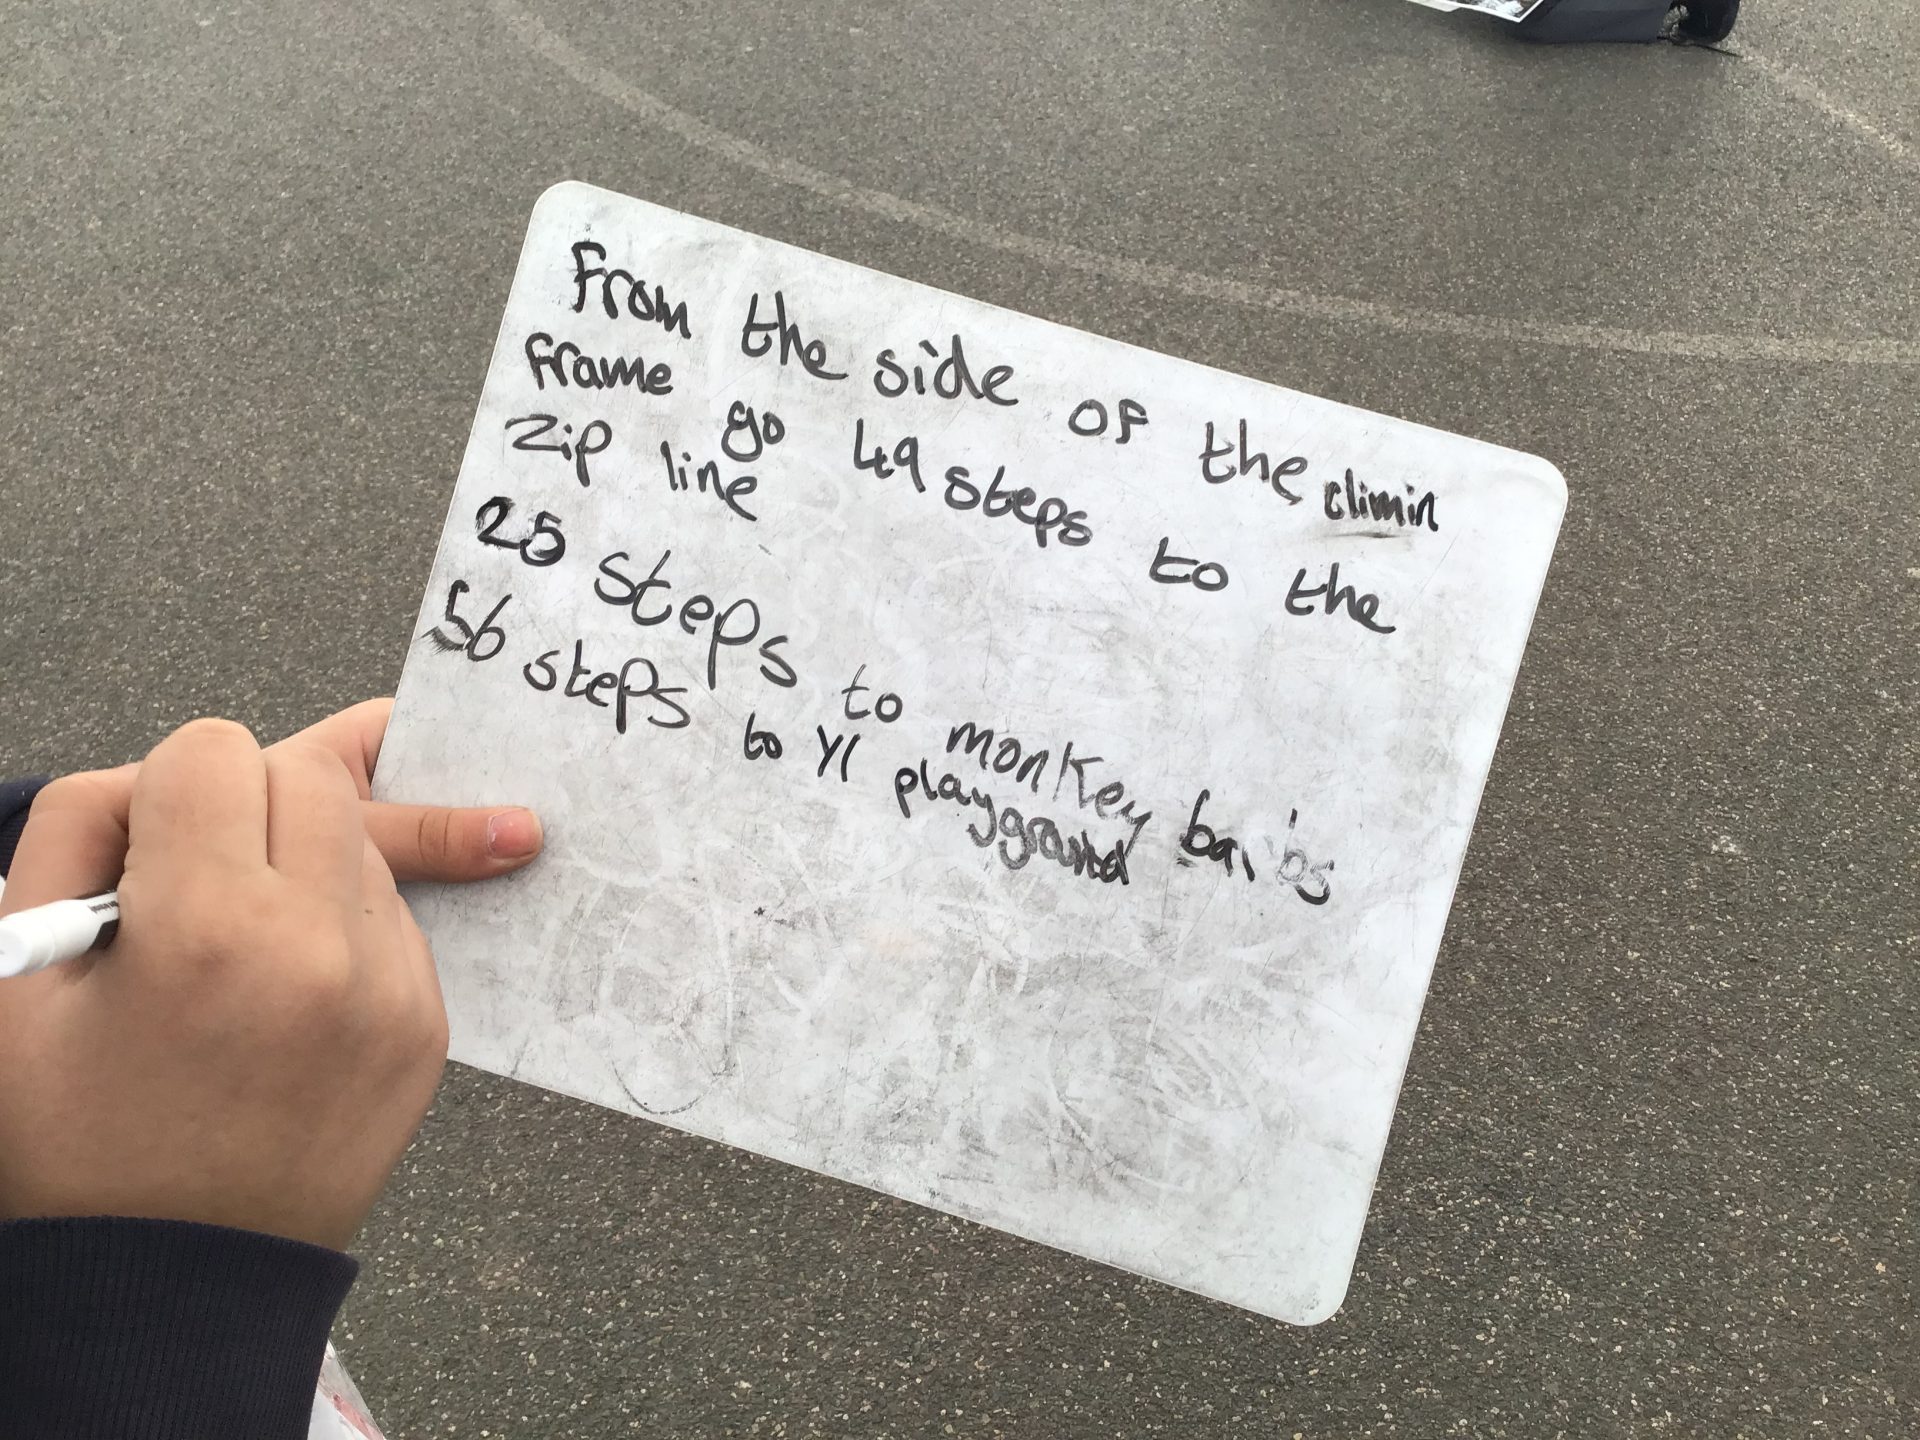 From the side of the climin
frame go 49 steps to the
Zip line
25 steps to monkey bars
56 steps to Y1 playground